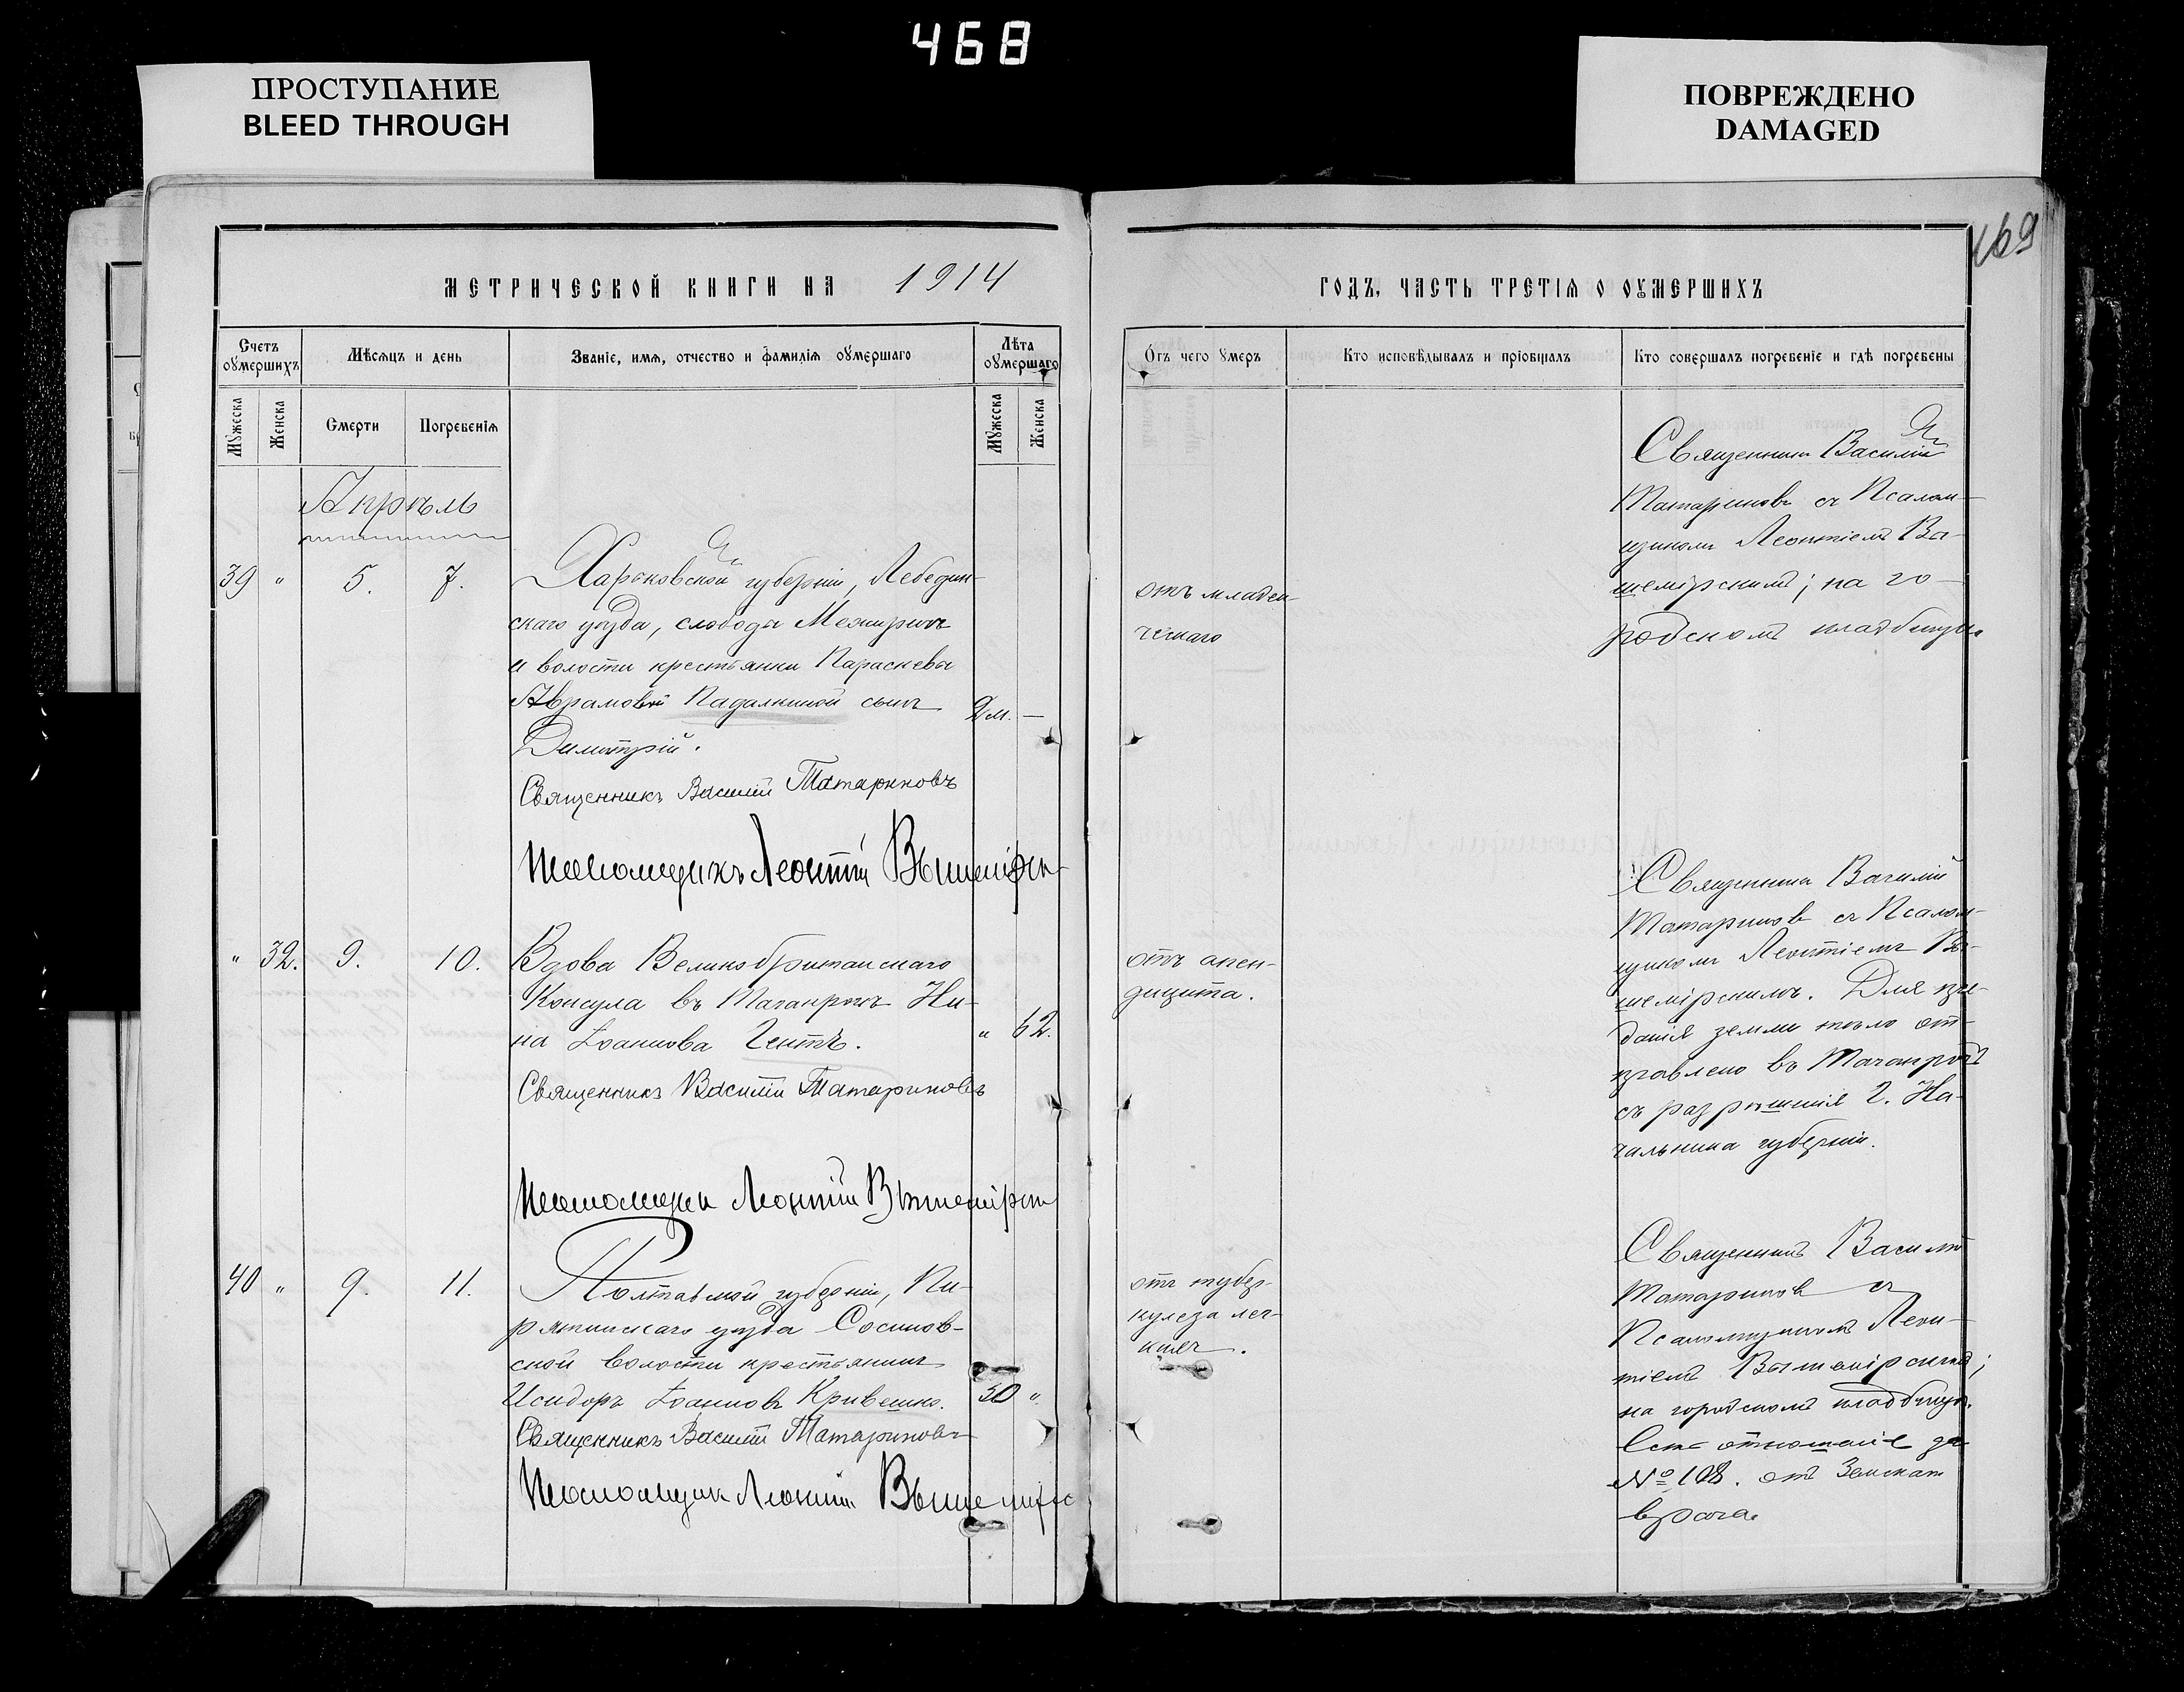 468
ПРОСТУПАНИЕ
BLEED THROUGH
ПОВРЕЖДЕНО
DAMAGED
469
МЕТРИЧЕСКОЙ КНИГИ НА 1914
ГОДЪ, ЧАСТЬ ТРЕТІЯ О ОУМЕРШИХЪ
Счетъ оумершихъ
Мѣсяцъ и день
Званіе, имя, отчество и фамилія оумершаго
Лѣта оумершаго
Отъ чего умеръ
Кто исповѣдывалъ и пріобщалъ
Кто совершалъ погребеніе и гдѣ погребены
Мужеска
Женска
Смерти
Погребенія
Мужеска
Женска
Апрѣль
39 " 5. 7.
Харьковской губерніи, Лебедин-
скаго уѣзда, слободы Межиричъ
и волости крестьянки Параскевы
Аврамовой Падалкиной сынъ
Димитрій.
2 м. —
Священникъ Василій Татариновъ
Псаломщикъ Леонтій
отъ младен-
ческаго
Священникъ Василій
Татариновъ съ Псалом-
щикомъ Леонтіемъ Вы-
шемірскимъ; на го-
родскомъ кладбищѣ
" 32. 9. 10.
Вдова Великобританскаго
Консула въ Таганрогѣ Ни-
на Іоаннова Гентъ.
" 62.
Священникъ Василій Татариновъ
Псаломщикъ Леонтій Вышемірскі
отъ апен-
дицита.
Священникъ Василій
Татариновъ съ Псалом-
щикомъ Леонтіемъ Вы-
шемірскимъ. Для пре-
данія земли тѣло от-
правлено въ Таганрогъ
съ разрѣшенія Г. На-
чальника губерніи.
40 " 9. 11.
Полтавской губерніи, Пи-
рятинскаго уѣзда Сосинов-
ской волости крестьянинъ
Исидоръ Іоанновъ Кривешко.
30 "
Священникъ Василій Татариновъ
Псаломщикъ Леонтій
отъ тубер-
кулеза лег-
кихъ.
Священникъ Василій
Татариновъ съ
Псаломщикомъ Леон-
тіемъ Вышемірскимъ;
на городскомъ кладбищѣ.
Есть отношеніе за
№ 108. отъ Земскаго
врача.